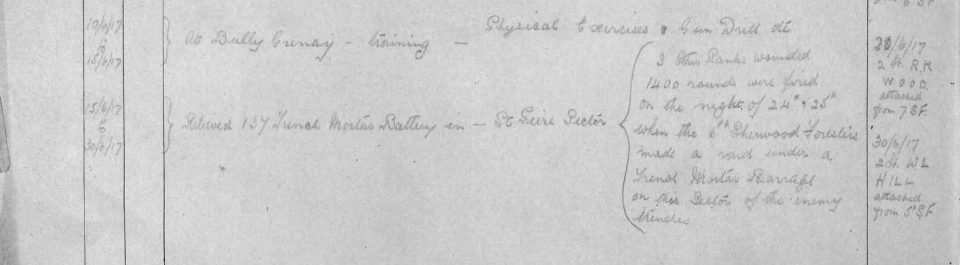 10/6/17
to
15/6/17
At Bully Grenay - training - Physical Exercises & Gun Drill etc
15/6/17
to
30/6/17
Relieved 137 Trench Mortar Battery in - St Pierre Sector
3 Other Ranks wounded
1400 rounds were fired
on the night of 24th & 25th
when the 8th Sherwood Foresters
made a raid under a
Trench Mortar Barrage
on this Sector of the enemy
trenches
6 SF
28/6/17
2 Lt. R.H
WOOD
attached
from 7 S.F.
30/6/17
2 Lt W L
HILL
attached
from 5 S.F.